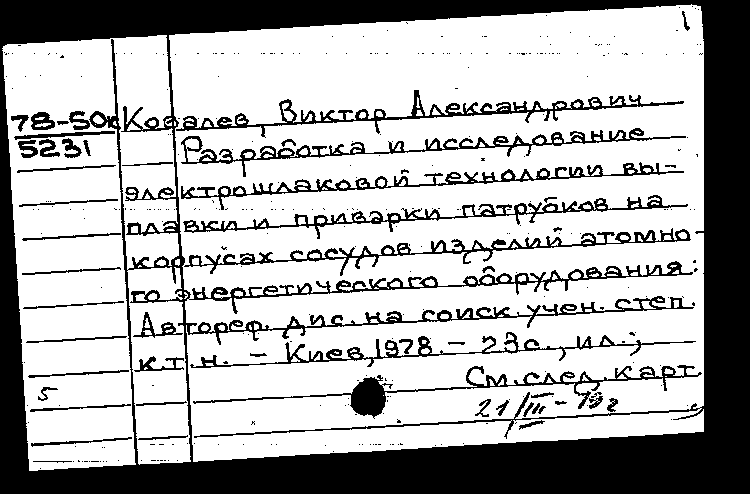 1
78-50к Ковалев, Виктор Александрович.
5231 Разработка и исследование
электрошлаковой технологии вы-
плавки и приварки патрубков на
корпусах сосудов изделий атомно-
го энергетического оборудования:
Автореф. дис. на соиск. учен. степ.
к.т.н. – Киев, 1978. – 23с., ил.;
См. след. карт.
5
21/III-